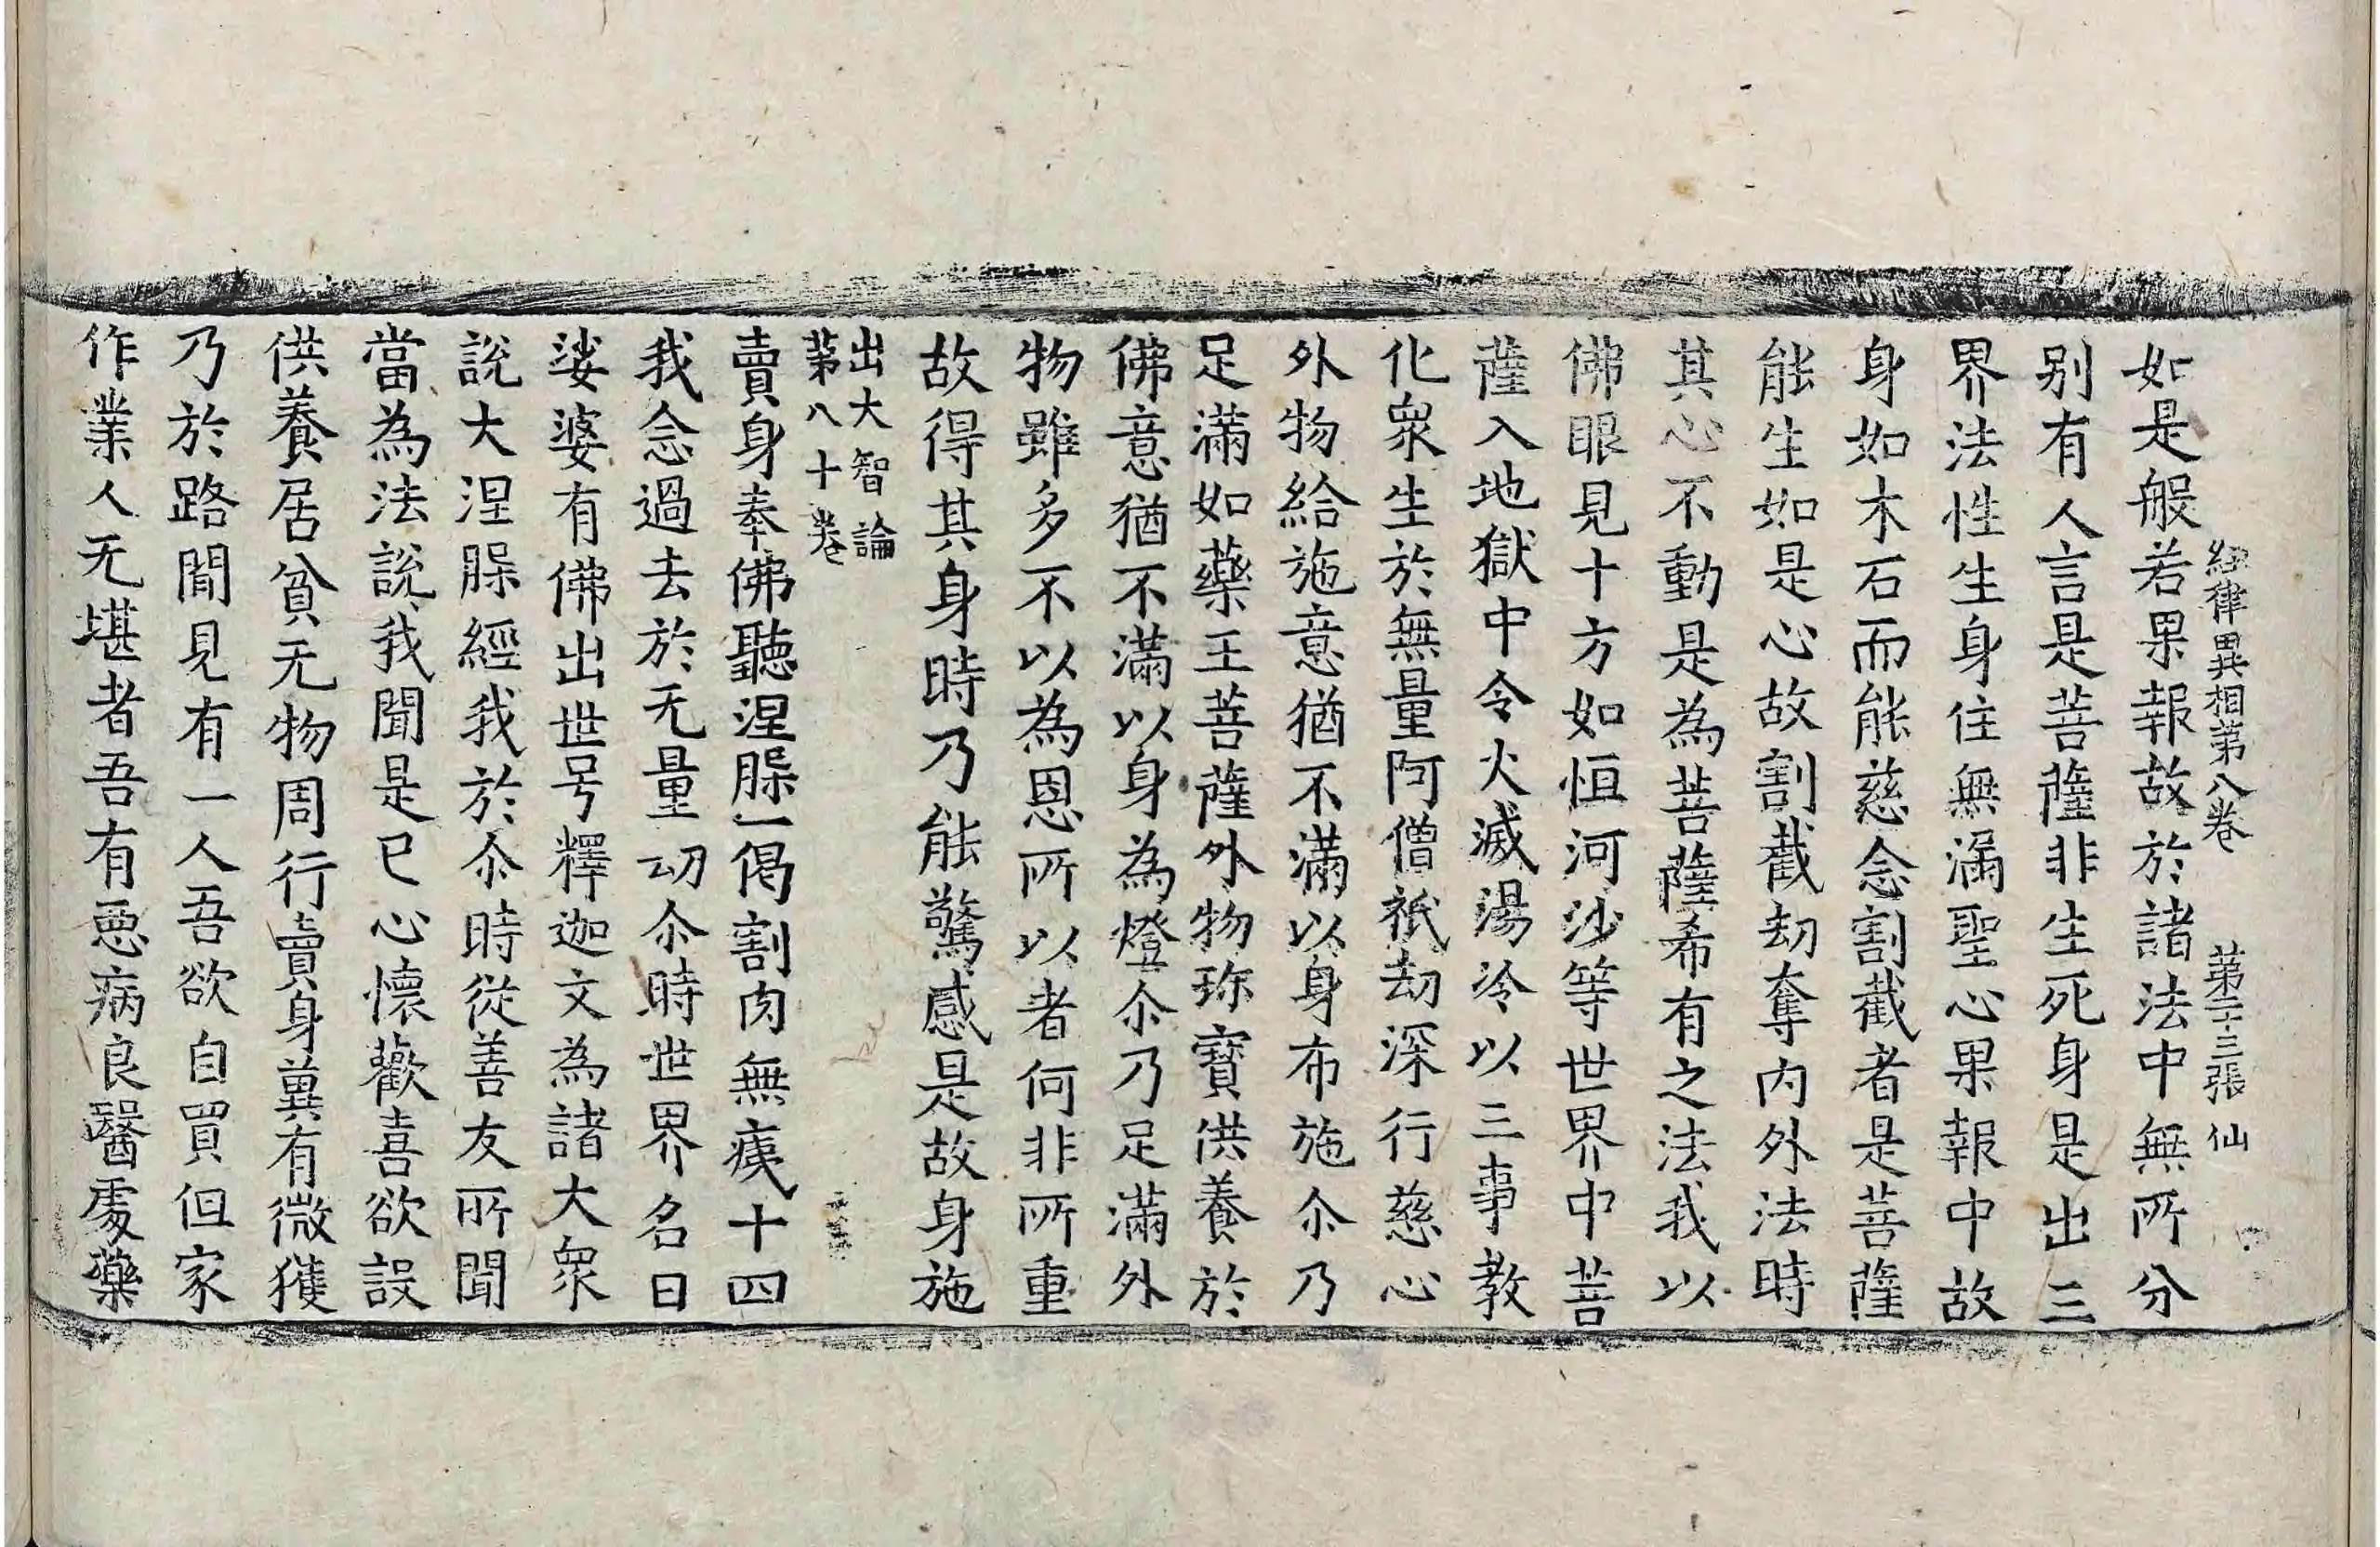 經律異相第八卷 第二十三張 仙
如是般若果報故於諸法中無所分
别有人言是菩薩非生死身是出三
界法性生身住無漏聖心果報中故
身如木石而能慈念割截者是菩薩
能生如是心故割截劫奪內外法時
其心不動是為菩薩希有之法我以
佛眼見十方如恒河沙等世界中菩
薩入地獄中令火滅湯冷以三事教
化衆生於無量阿僧祇劫深行慈心
外物給施意猶不滿以身布施尒乃
足滿如藥王菩薩外物珎寶供養於
佛意猶不滿以身為燈尒乃足滿外
物雖多不以為恩所以者何非所重
故得其身時乃能驚感是故身施
出大智論
第八十卷
賣身奉佛聽涅槃一偈割肉無痍十四
我念過去於无量劫尒時世界名曰
娑婆有佛出世号釋迦文為諸大衆
說大涅槃經我於尒時從善友所聞
當為法說我聞是已心懷歡喜欲設
供養居貧无物周行賣身兾有微獲
乃於路閒見有一人吾欲自買但家
作業人无堪者吾有惡病良醫處藥